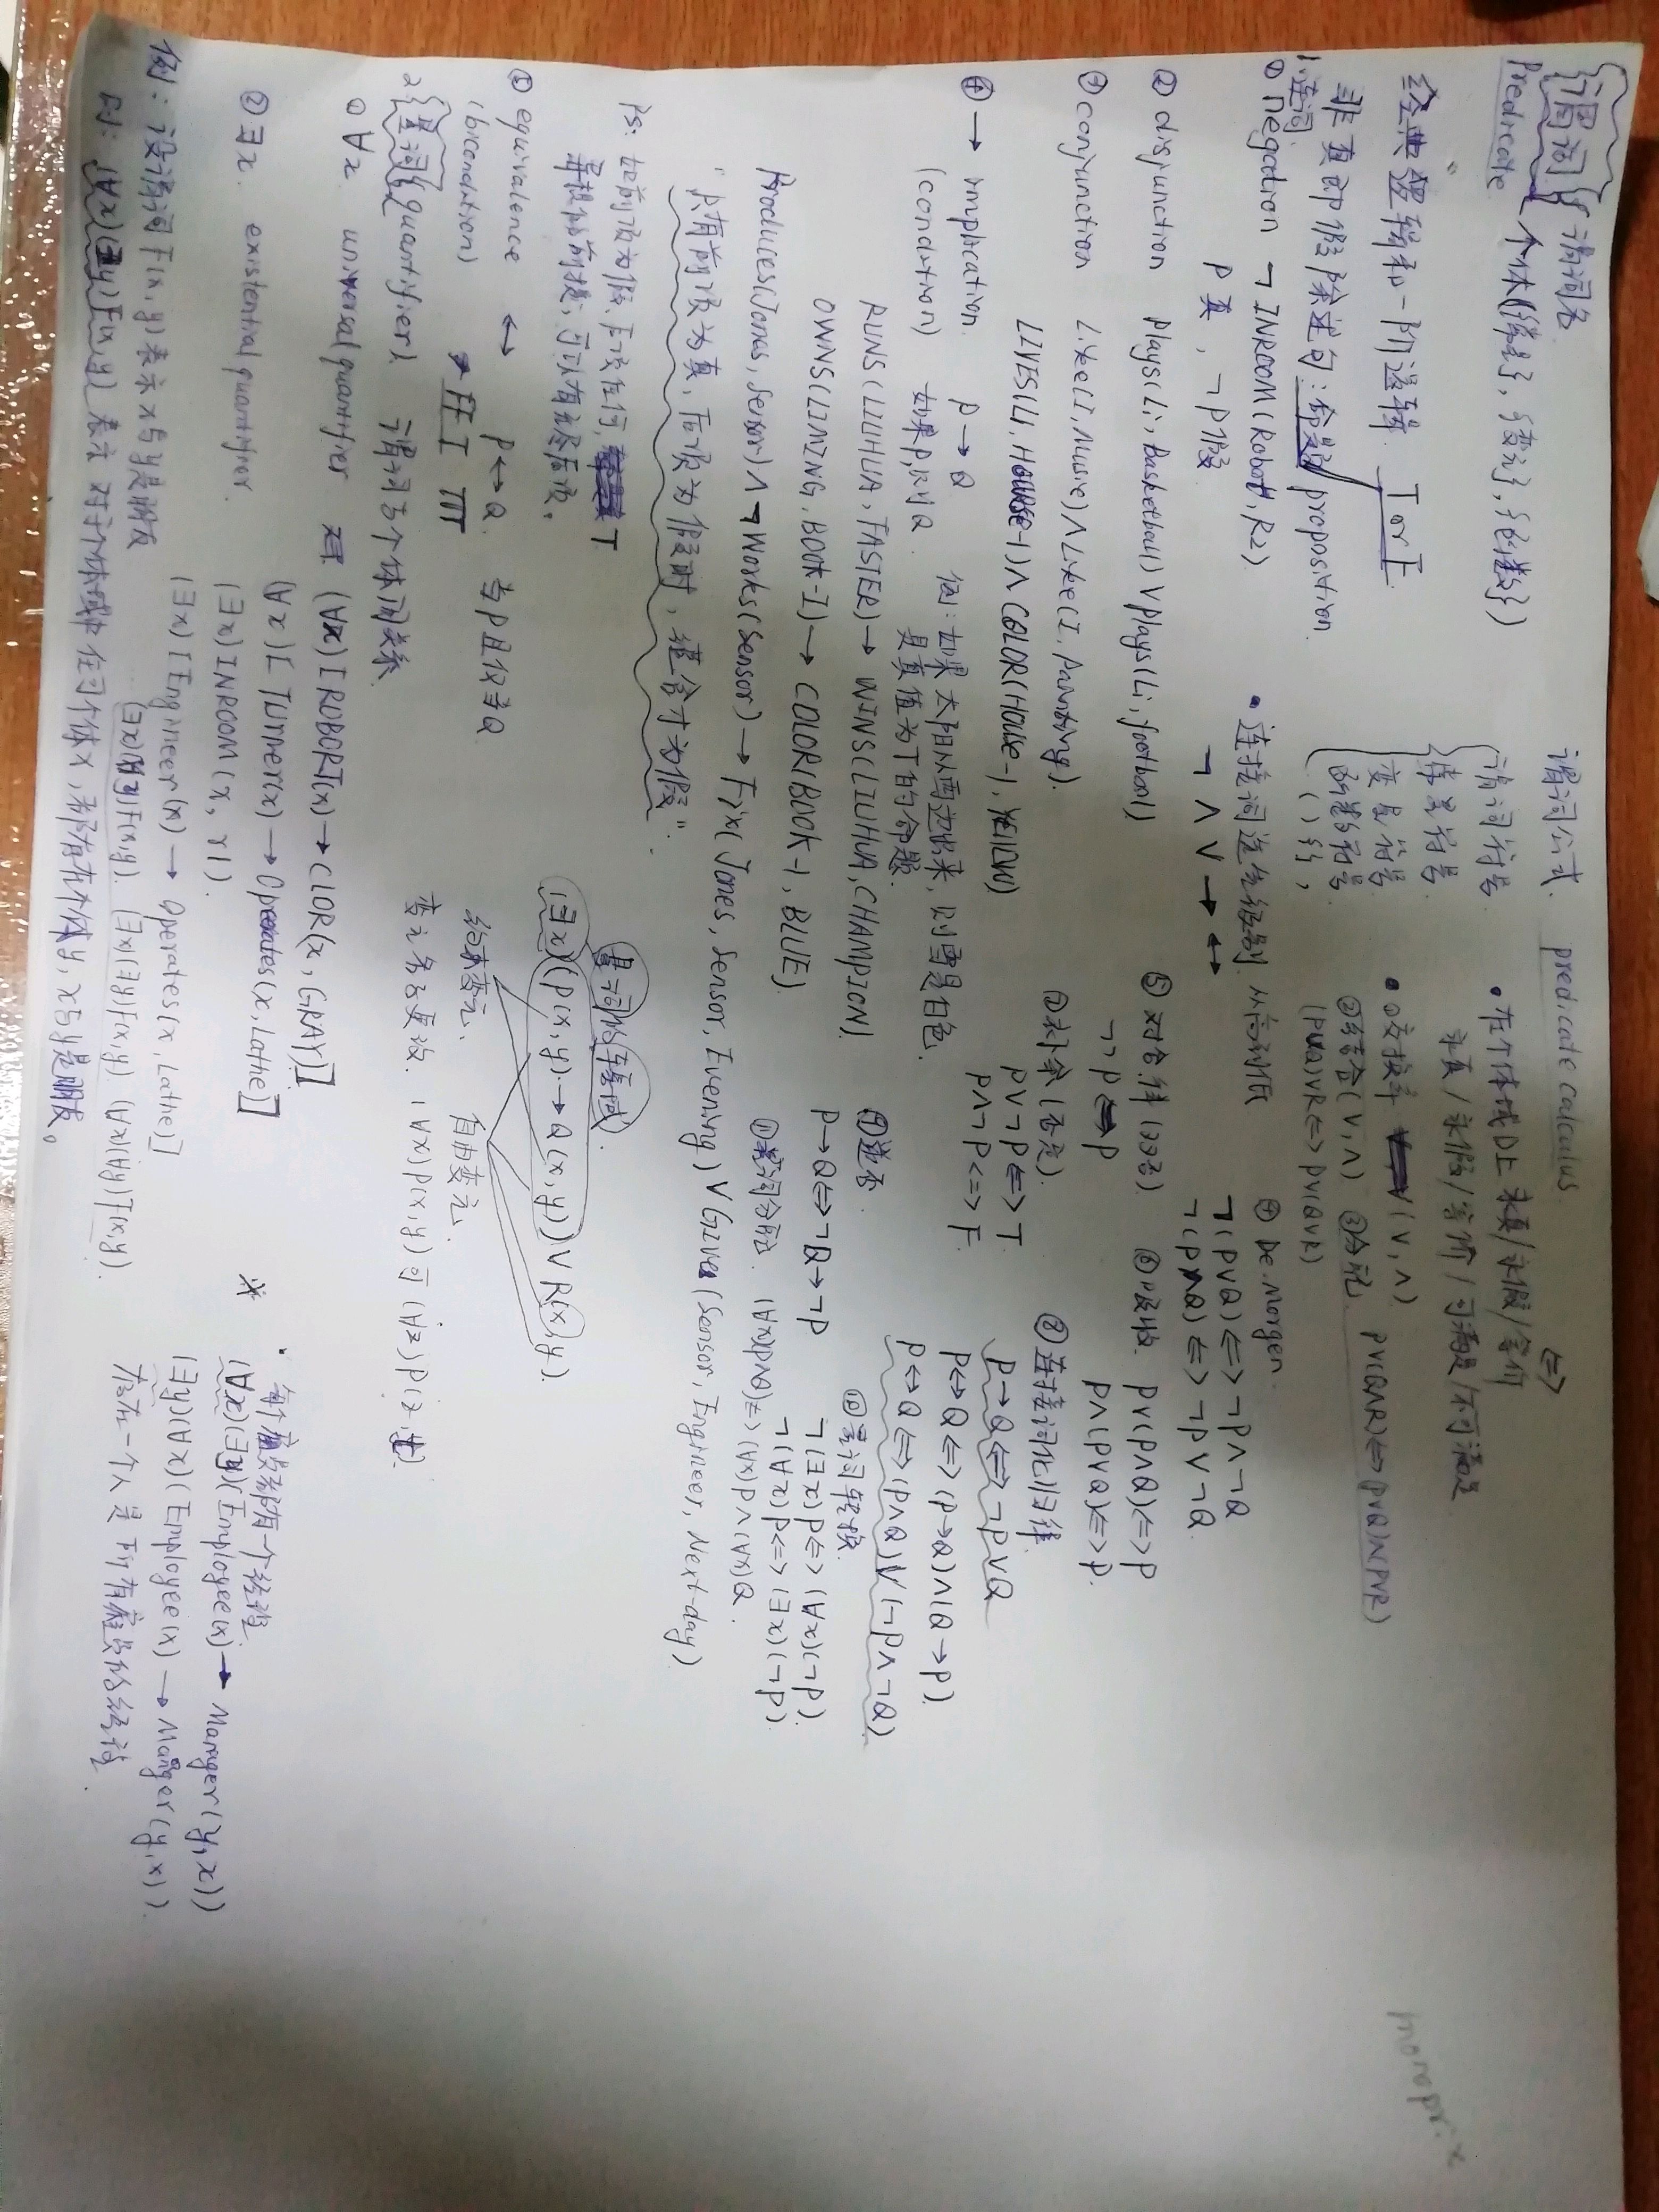 {谓词} { 谓词名
Predicate 个体({常量}, {变元}, {函数})
经典逻辑和一阶逻辑. T or F
非真即假陈述句: 命题 proposition.
1.连词
① negation ¬ INROOM(Robot, R2)
P真, ¬P假
② disjunction Plays(Li, Basketball) ∨ Plays(Li, football)
③ conjunction Like(I, Music) ∧ Like(I, Painting).
LIVES(LI, HOUSE-1) ∧ COLOR(HOUSE-1, YELLOW)
④ → implication P → Q 例: 如果太阳从西边出来, 则雪是白色.
(condition) 如果P, 则Q. 是真值为T的命题.
RUNS(LIUHUA, FASTER) → WINS(LIUHUA, CHAMPION)
OWNS(LIMING, BOOK-1) → COLOR(BOOK-1, BLUE)
Produces(Jones, Sensor) ∧ ¬Works(Sensor) → Fix(Jones, Sensor, Evening) ∨ Gives(Sensor, Engineer, Next-day)
"只有前项为真, 后项为假时, 蕴含才为假".
Ps: 如前项为假, 后项任何, T
错误的前提, 可以有任意后项。
⑤ equivalence ↔ P ↔ Q 当P且仅当Q
(bicondition)
2 {量词} (quantifier) 谓词与个体间关系
① ∀x universal quantifier (∀x)[ROBORT(x) → CLOR(x, GRAY)]
(∀x)[Turner(x) → Operates(x, Lathe)]
② ∃x. existential quantifier. (∃x) INROOM(x, r1).
(∃x)[Engineer(x) → Operates(x, Lathe)]
例: 设谓词F(x, y)表示x与y是朋友 (∃x)(∀y)F(x,y). (∃x)(∃y)F(x,y). (∀x)(∀y)F(x,y).
则: (∀x)(∃y)F(x,y) 表示对于个体域中任何个体x, 都存在个体y, x与y是朋友。
谓词公式 predicate calculus
{ 谓词符号
常量符号
变量符号
函数符号
( ) { } ,
• 连接词优先级别 从高到低
¬ ∧ ∨ → ↔
• 在个体域D上 永真/永假/等价 ⇔
永真/永假/等价/可满足/不可满足
• ①交换率 (∨, ∧)
②结合(∨, ∧) ③分配. P∨(Q∧R)⇔(P∨Q)∧(P∨R)
(P∨Q)∨R⇔P∨(Q∨R)
④ De.Morgen.
¬(P∨Q)⇔¬P∧¬Q
¬(P∧Q)⇔¬P∨¬Q.
⑤ 对合律(双否). ⑥吸收 P∨(P∧Q)⇔P
¬¬P⇔P P∧(P∨Q)⇔P.
⑦ 补余(否定). ⑧ 连接词化归律
P∨¬P⇔T P→Q⇔¬P∨Q
P∧¬P⇔F. P↔Q⇔(P→Q)∧(Q→P).
P↔Q⇔(P∧Q)∨(¬P∧¬Q)
⑨逆否 ⑩量词转换
P→Q⇔¬Q→¬P ¬(∃x)P⇔(∀x)(¬P).
¬(∀x)P⇔(∃x)(¬P).
⑪量词分配. (∀x)(P∧Q)⇔(∀x)P∧(∀x)Q.
量词的辖域.
(∃x)(P(x,y)→Q(x,y))∨R(x,y).
约束变元. 自由变元.
变元名更改. (∀x)P(x,y)可(∀z)P(z,
* • 每个雇员都有个经理.
(∀x)(∃y)(Employee(x)→Manager(y,x))
(∃y)(∀x)(Employee(x)→Manager(y,x)).
存在一个人是所有雇员的经理.